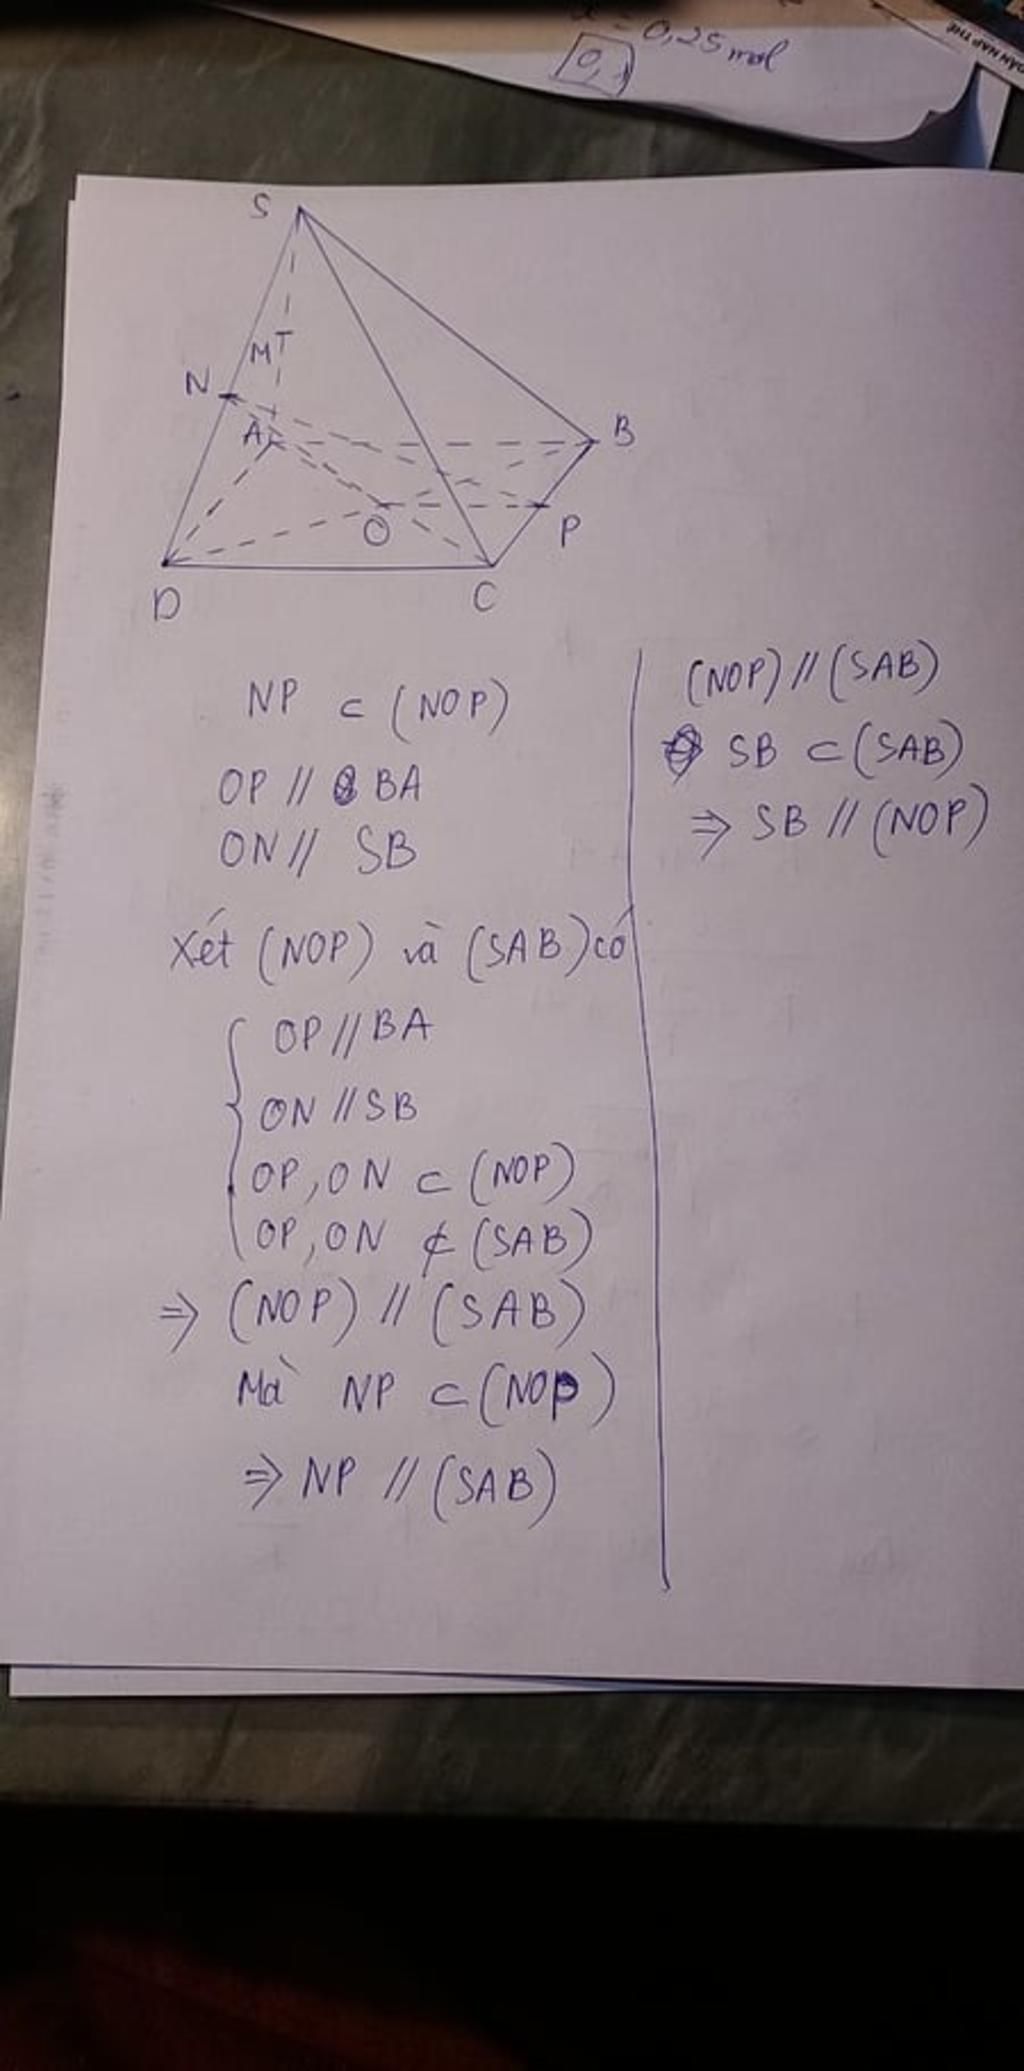 = 0,25 mol
S
M
N
A
B
O
P
D
C
NP ⊂ (NOP)
OP // BA
ON // SB
Xét (NOP) và (SAB) có
OP // BA
ON // SB
OP, ON ⊂ (NOP)
OP, ON ⊄ (SAB)
⇒ (NOP) // (SAB)
Mà NP ⊂ (NOP)
⇒ NP // (SAB)
(NOP) // (SAB)
SB ⊂ (SAB)
⇒ SB // (NOP)